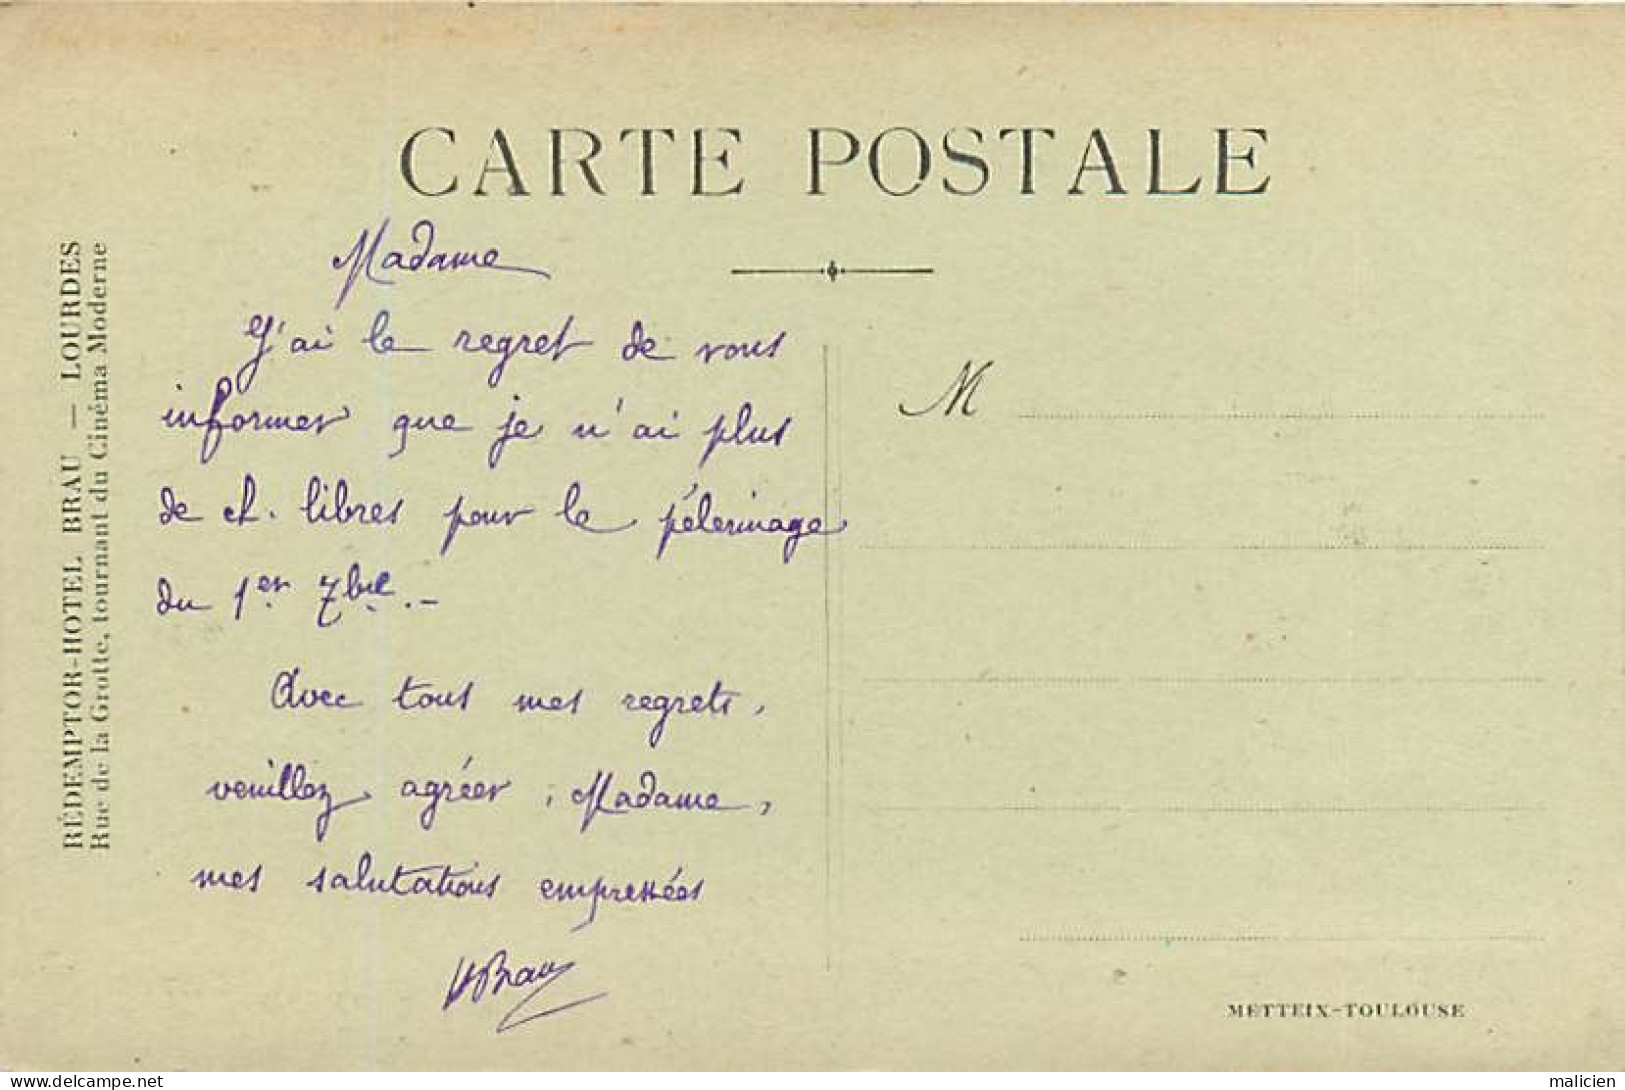 CARTE POSTALE
RÉDEMPTOR-HOTEL BRAU — LOURDES
Rue de la Grotte, tournant du Cinéma Moderne
Madame
J'ai le regret de vous
informer que je n'ai plus
de ch. libres pour le pélerinage
du 1er 7bre. –
Avec tous mes regrets,
veuillez agréer, Madame,
mes salutations empressées
HBrau
M
METTEIX-TOULOUSE
delcampe.net
malicien